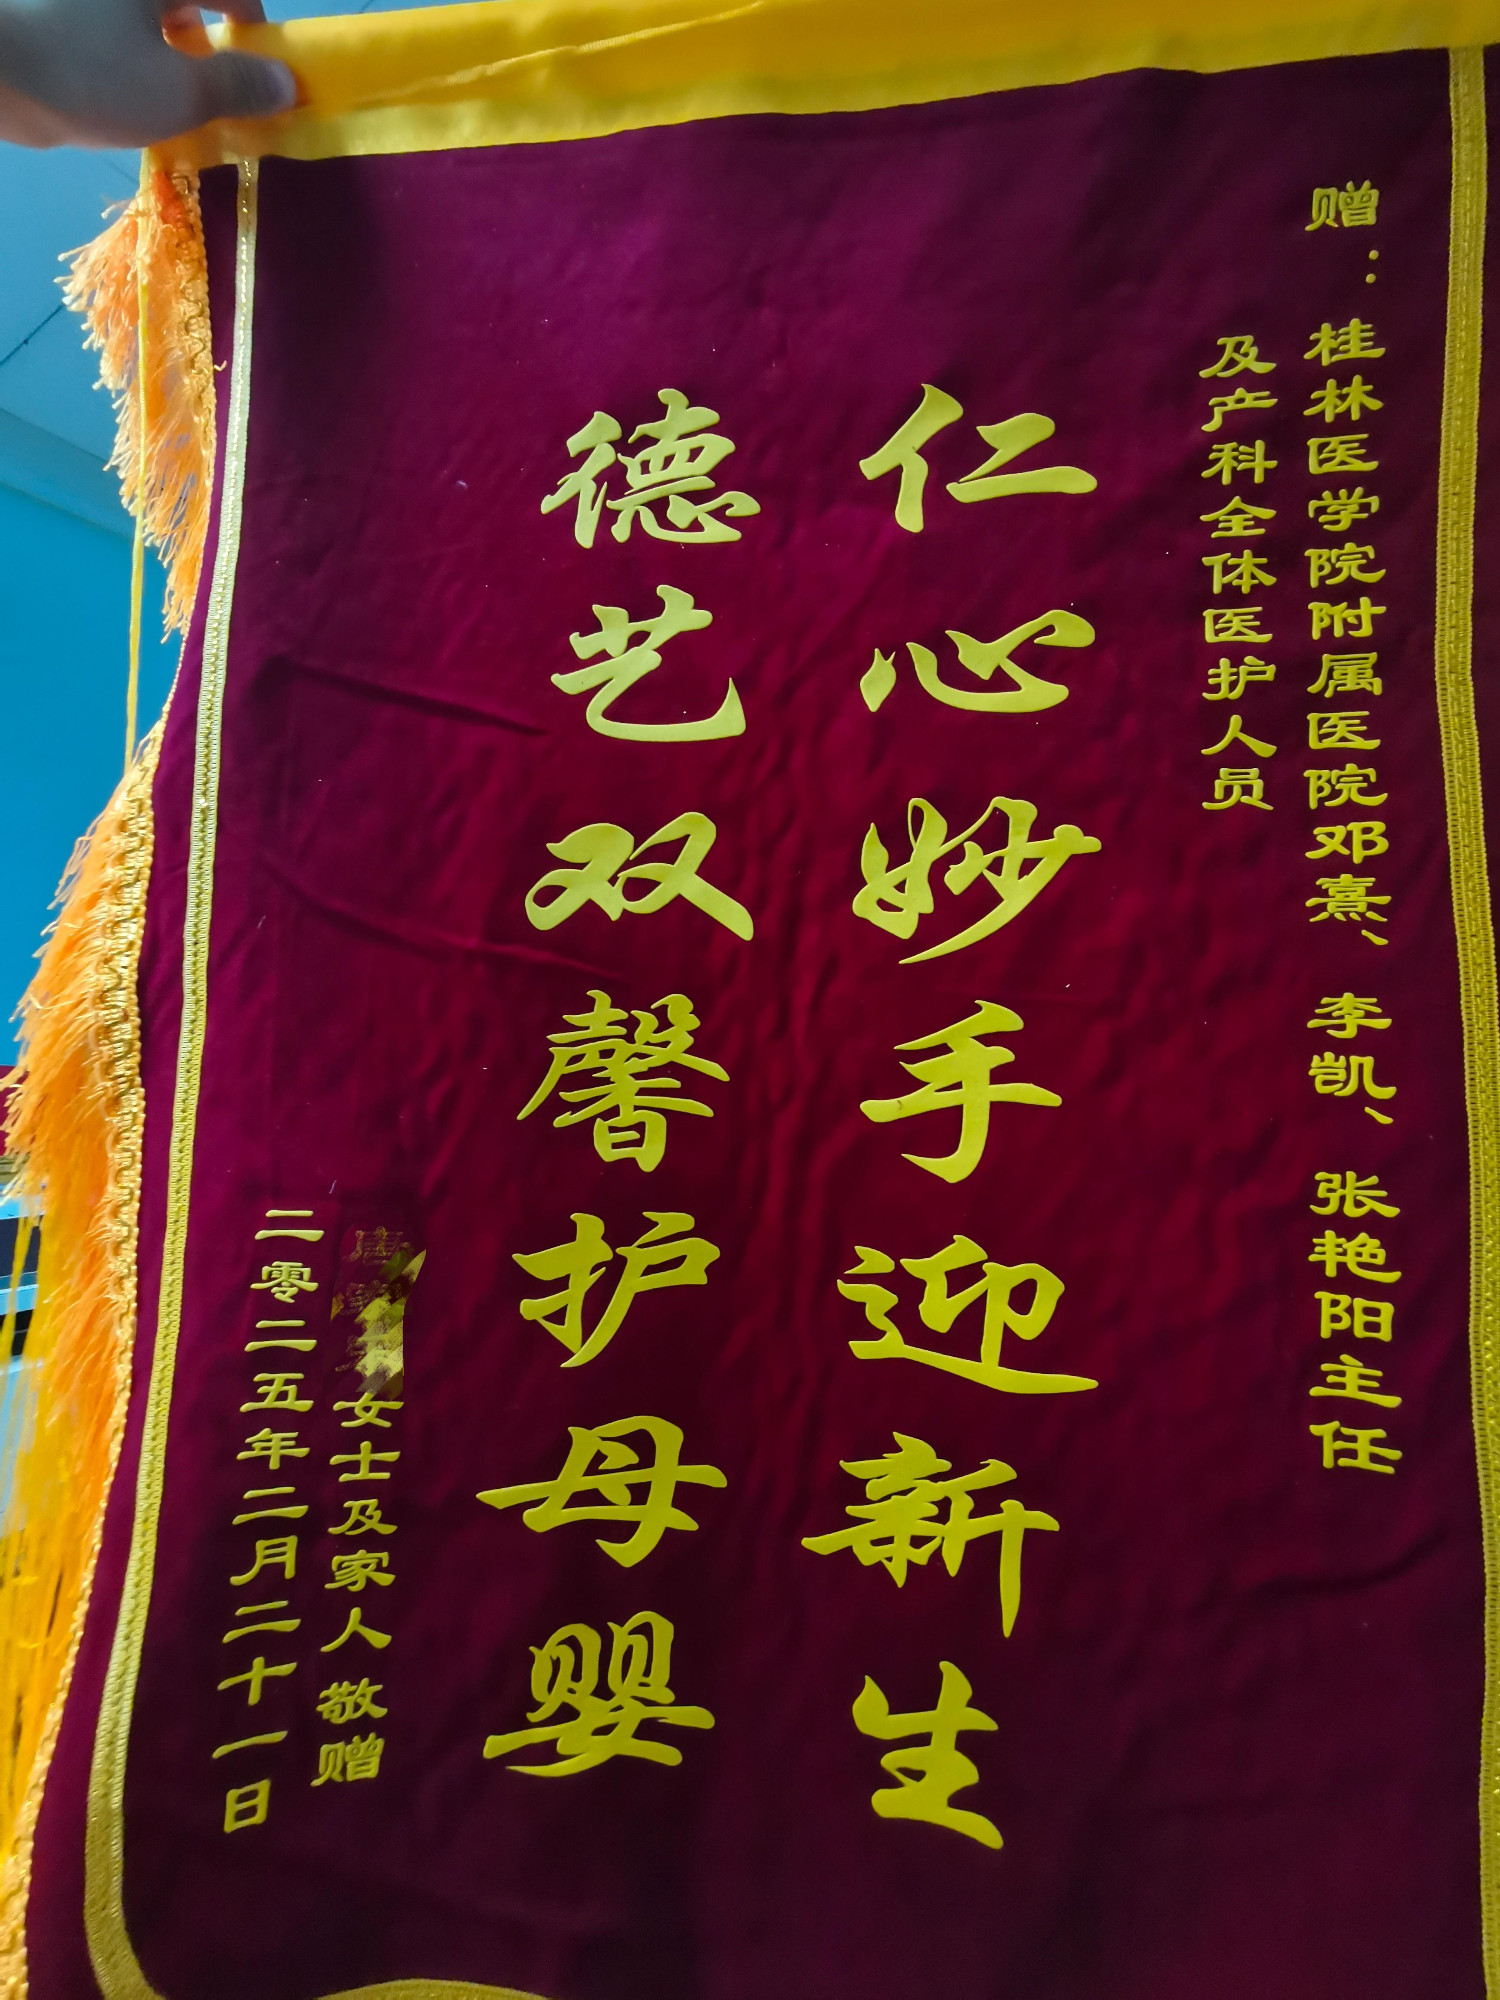 赠：桂林医学院附属医院邓熹、李凯、张艳阳主任
及产科全体医护人员
仁心妙手迎新生
德艺双馨护母婴
女士及家人敬赠
二零二五年二月二十一日